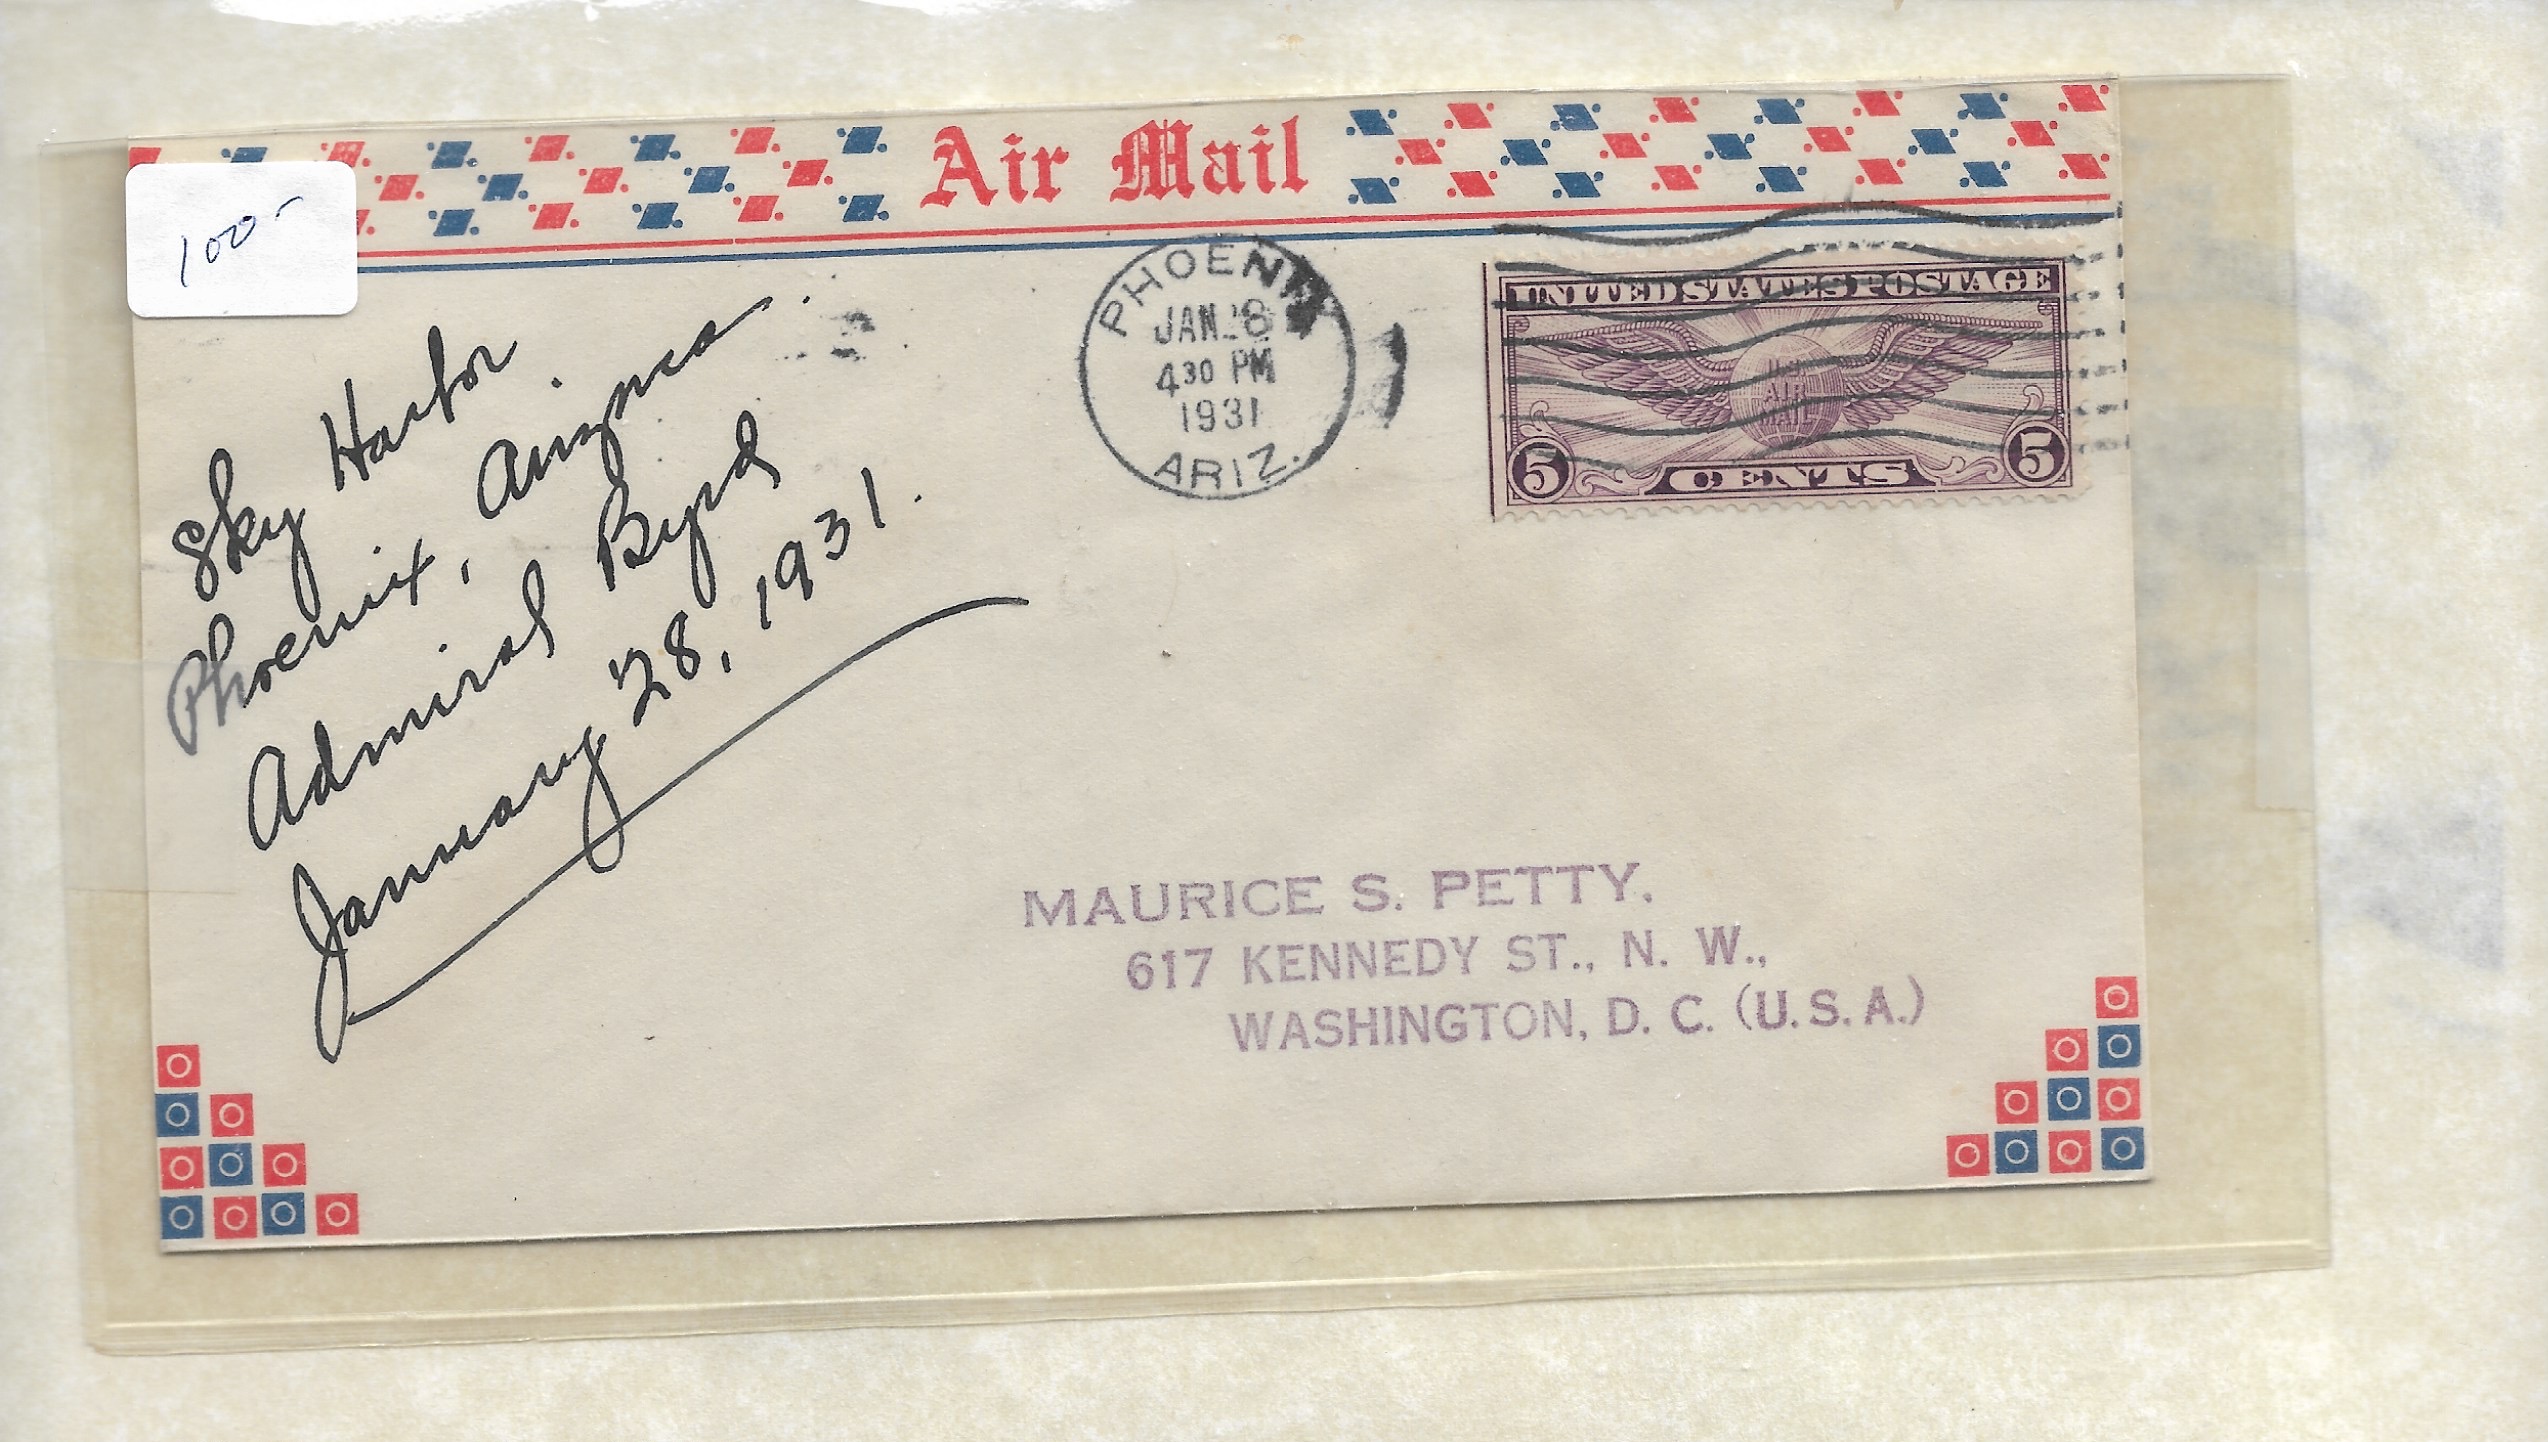 Air Mail
100-
PHOENIX
JAN 28
4 30 PM
1931
ARIZ.
UNITED STATES POSTAGE
U.S.
AIR
MAIL
5 CENTS 5
Sky Harbor
Phoenix, Arizona.
Admiral Byrd
January 28, 1931.
MAURICE S. PETTY.
617 KENNEDY ST., N. W.,
WASHINGTON, D. C. (U.S.A.)